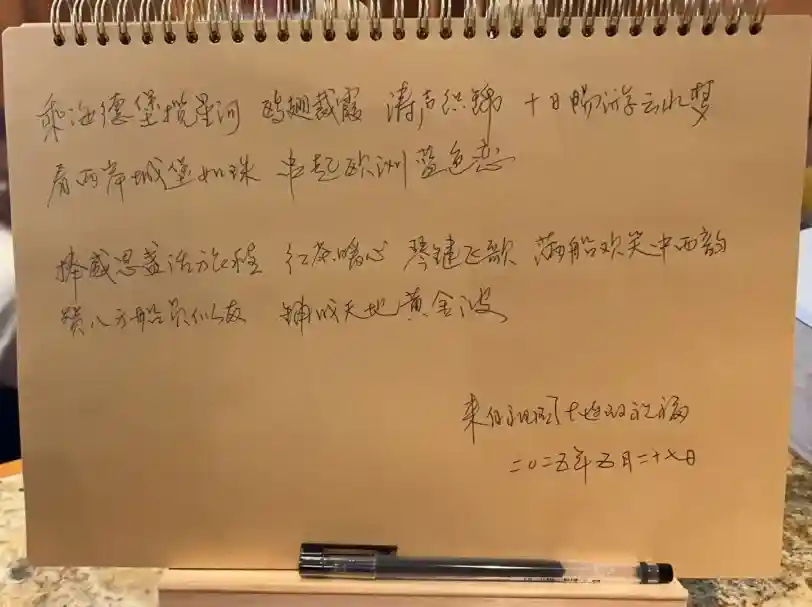 乘海德堡揽星河 鸥翅裁霞 涛声织锦 十日畅游云水梦
看两岸城堡如珠 串起欧洲蓝色恋
捧感恩盖话旅程 红茶暖心 琴键飞歌 满船欢笑中西韵
赞八方船员似友 铺成天地黄金波
来自 大地的祝福
二〇二五年五月二十七日